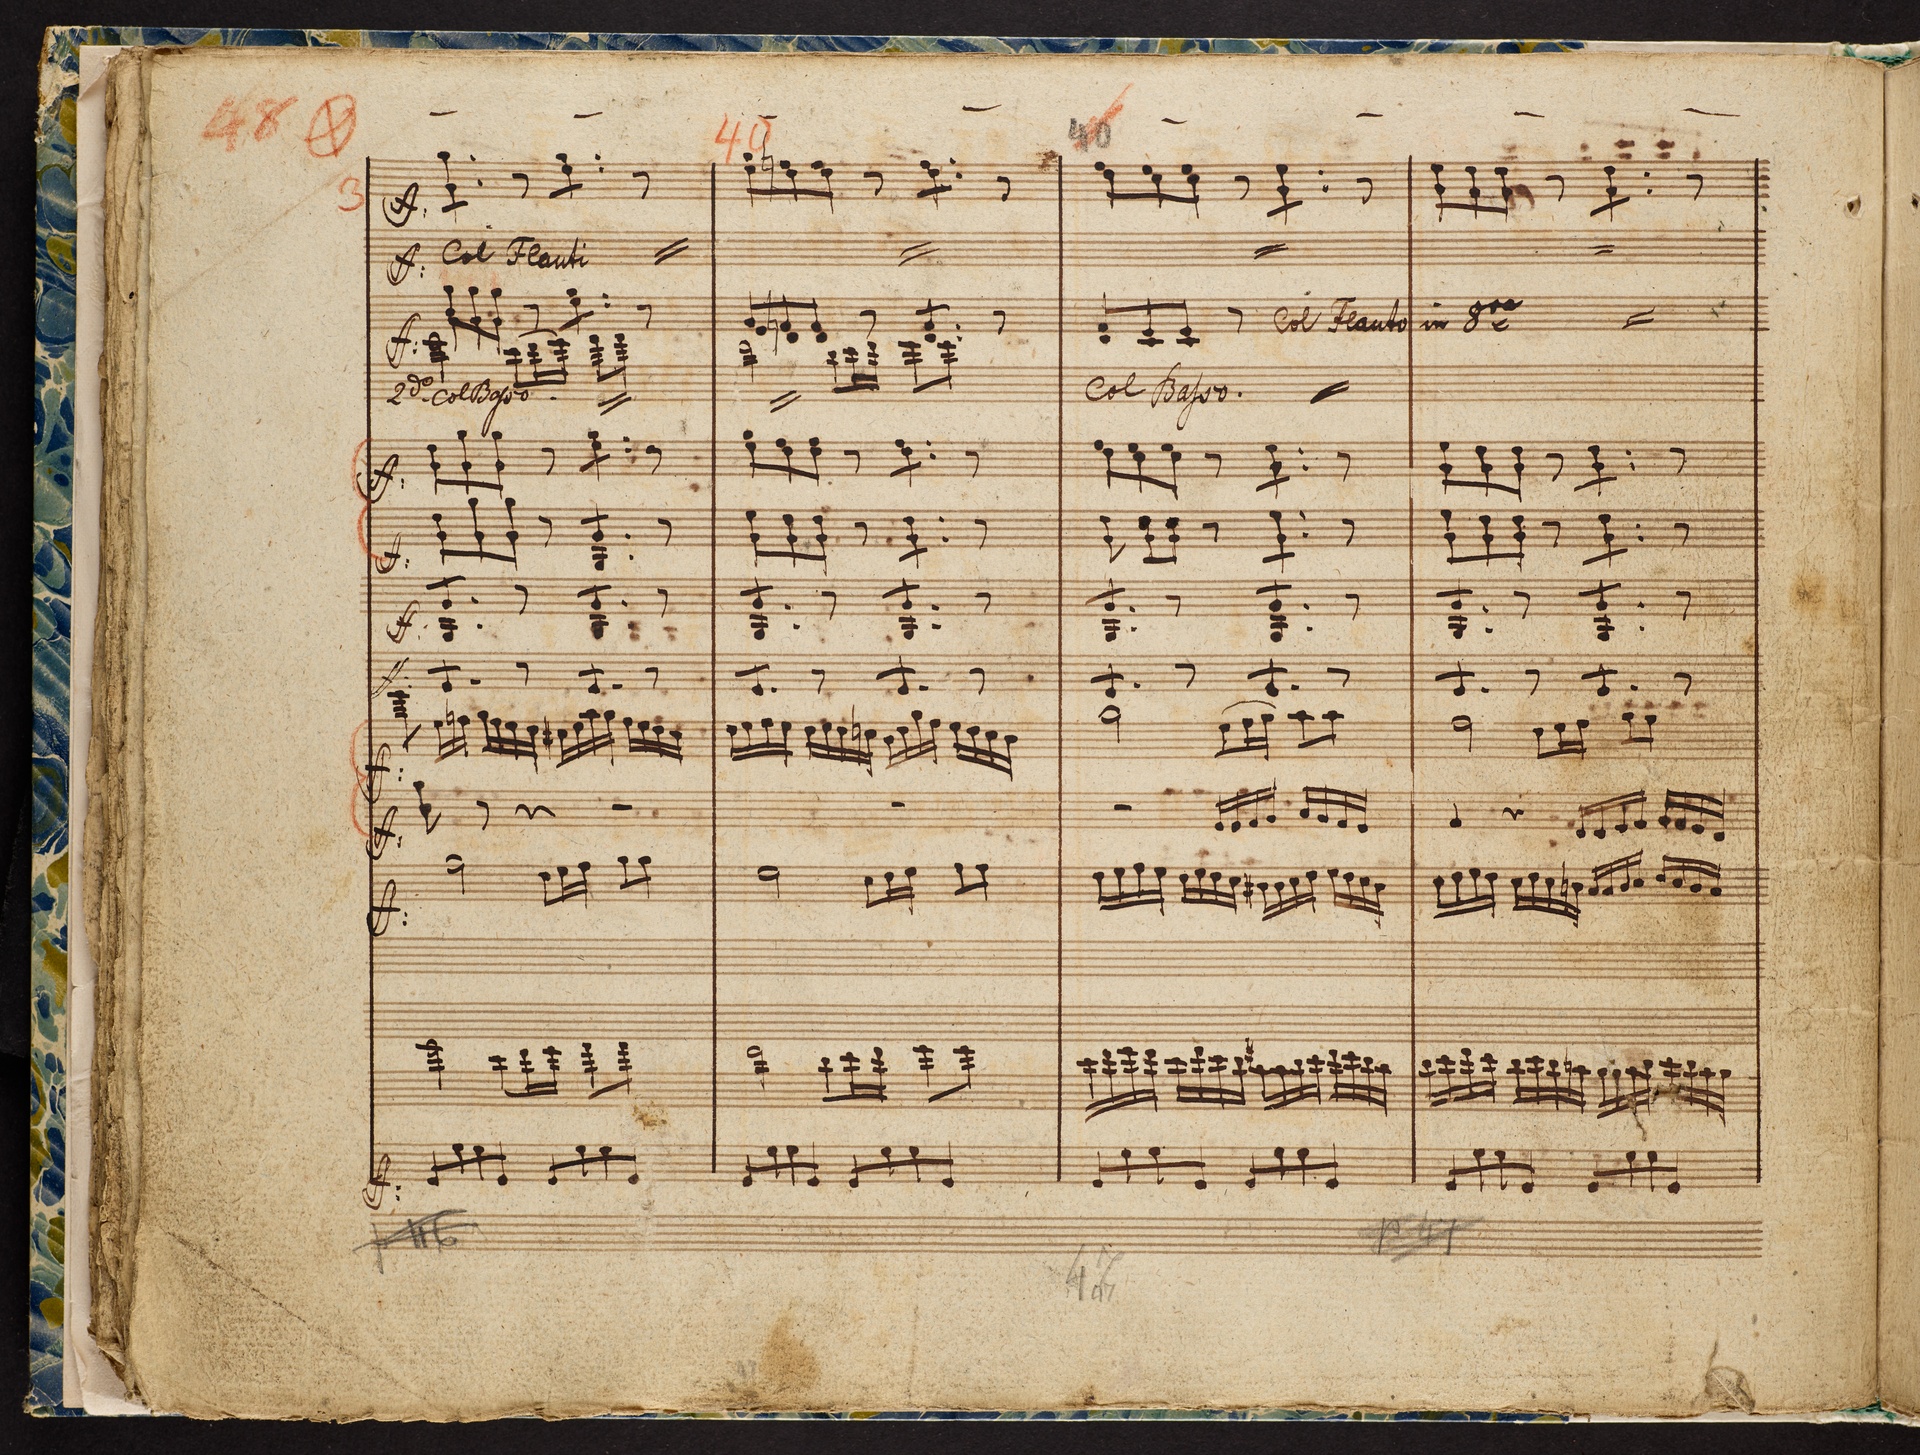 48 40 40
3
f:
f: Col Flauti
f: Col Flauto in 8va
2do Col Basso. Col Basso.
f:
f:
f:
f:
f:
f:
f:
f:
47